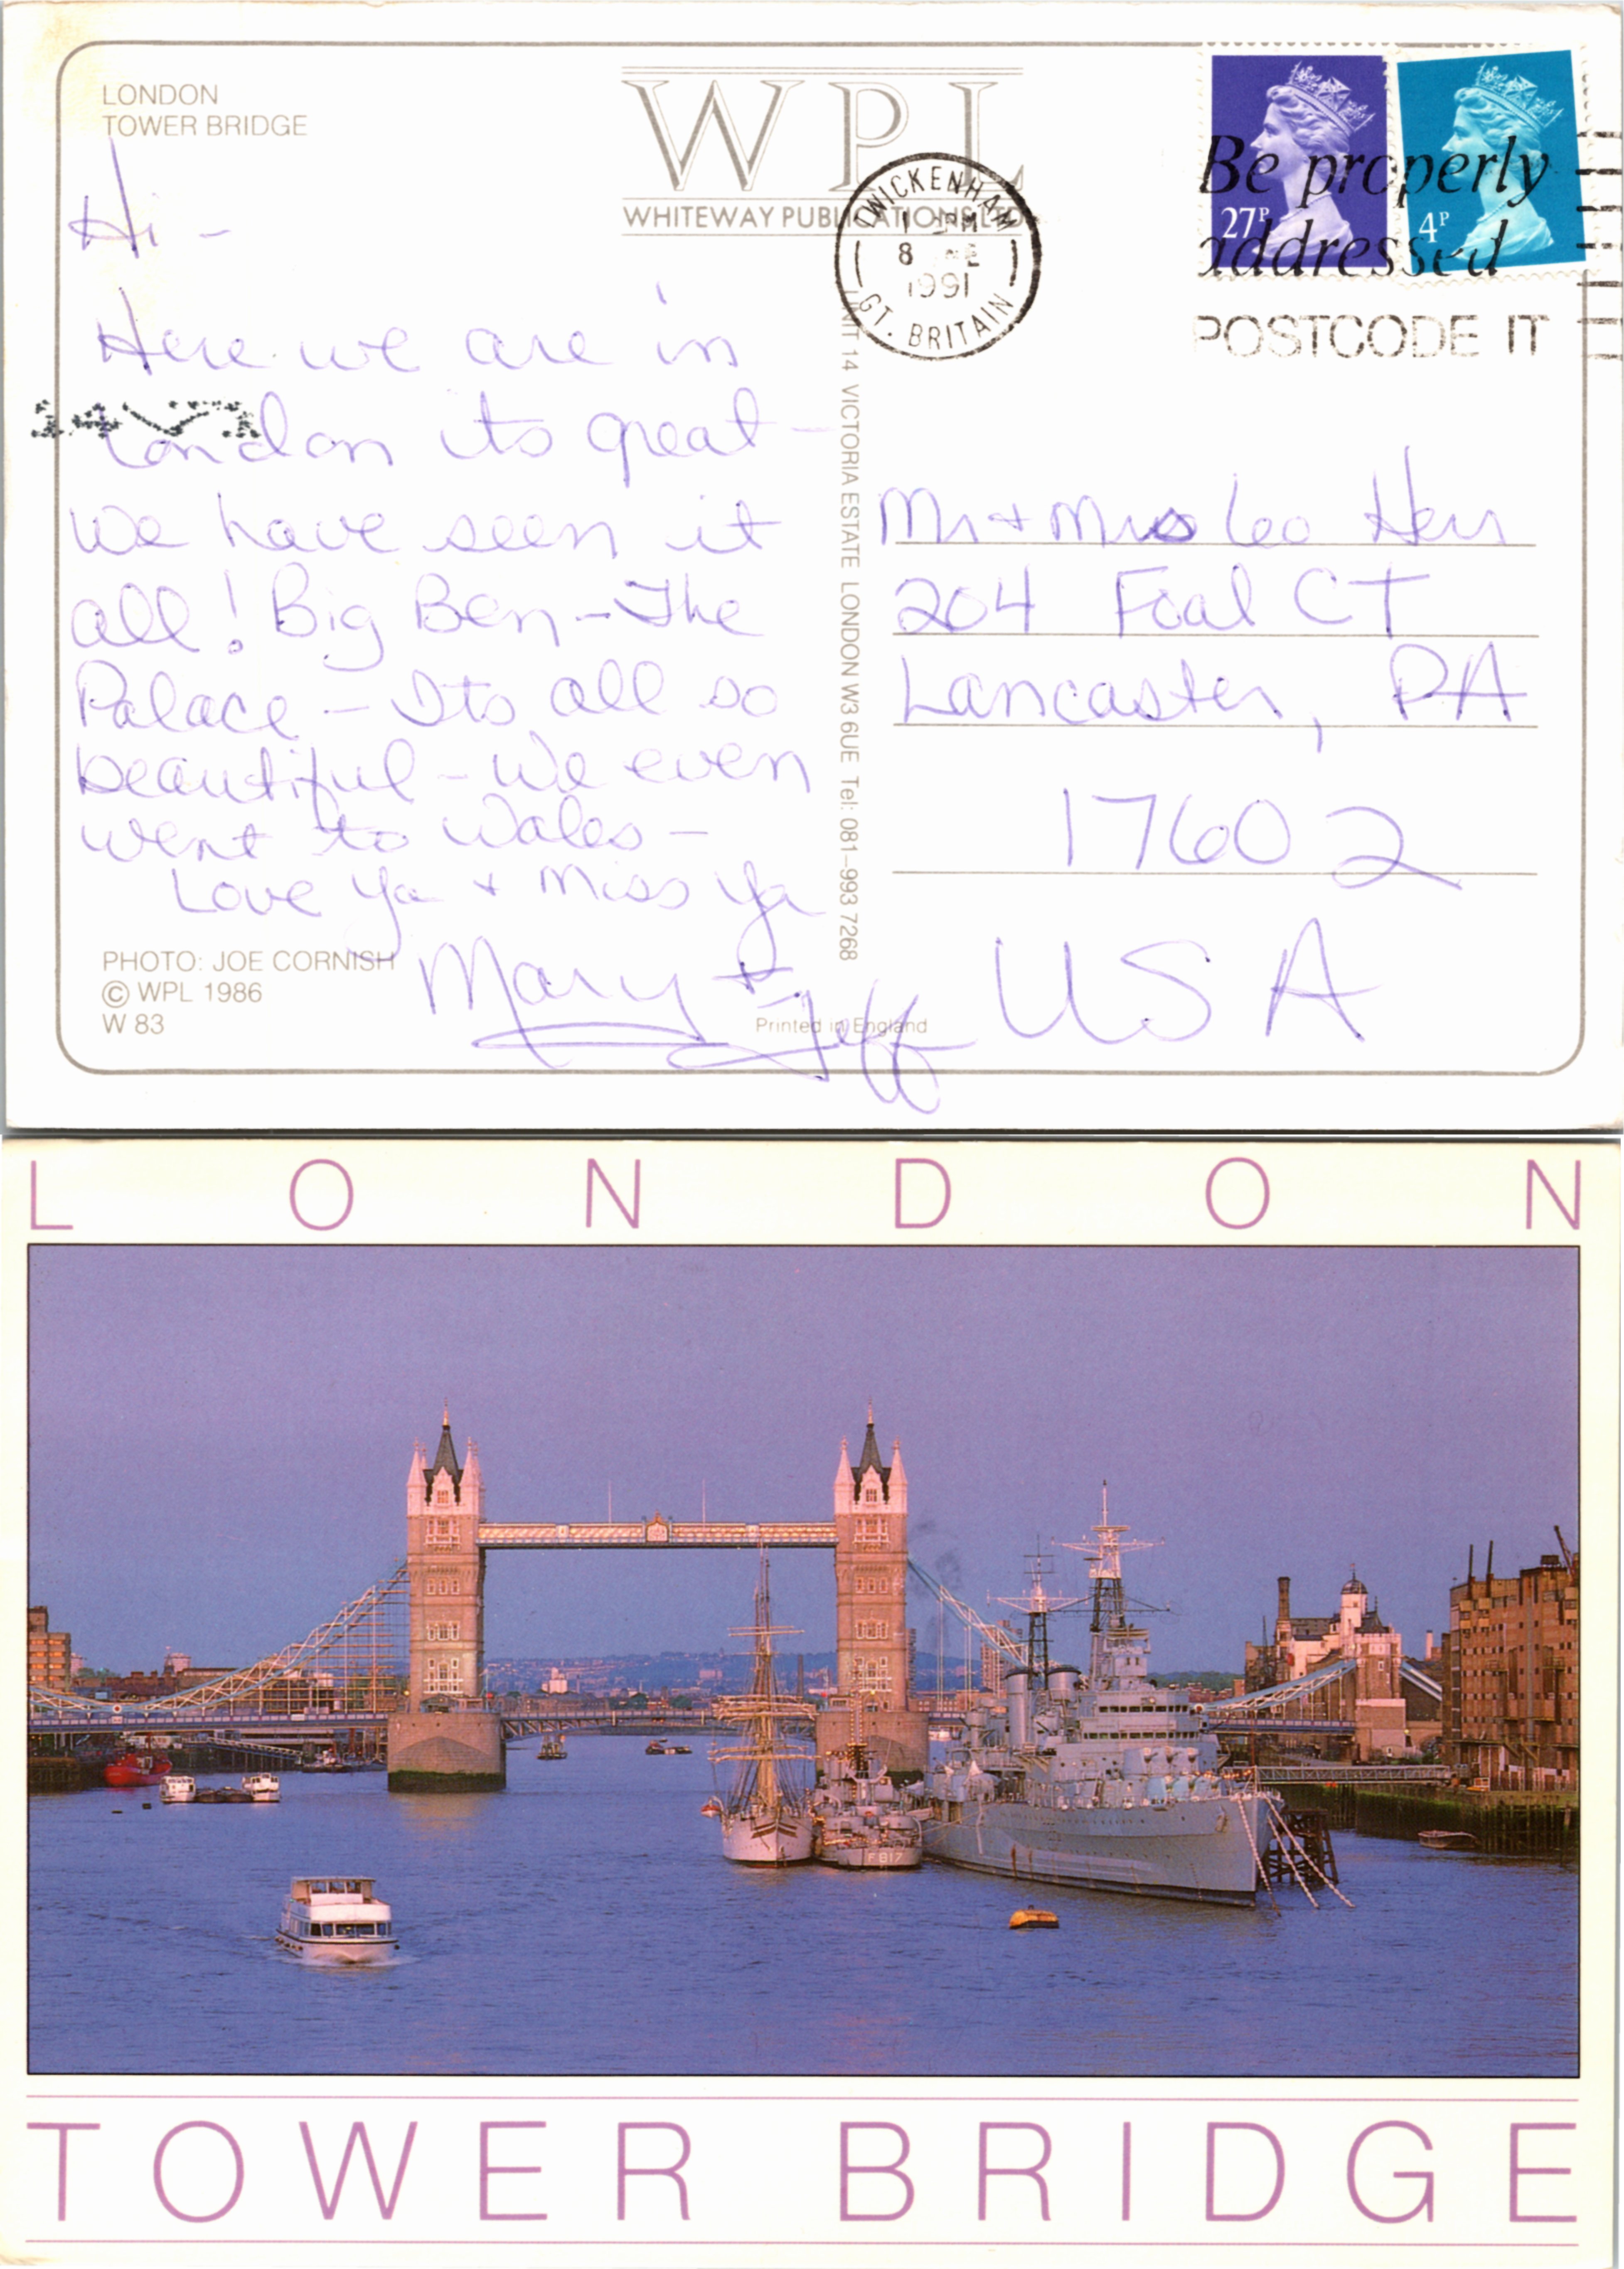 LONDON
TOWER BRIDGE
WPL
WHITEWAY PUBLICATIONS LTD
27P
4P
Be properly
addressed
POSTCODE IT
TWICKENHAM
8
1991
GT. BRITAIN
Hi -
Here we are in
London its great -
we have seen it
all! Big Ben - The
Palace - Its all so
beautiful - We even
went to Wales -
Love Ya + Miss Ya
Mary + Jeff
UNIT 14 VICTORIA ESTATE LONDON W3 6UE Tel: 081-993 7268
Mr + Mrs Leo Herr
204 Foal CT
Lancaster, PA
17602
USA
PHOTO: JOE CORNISH
© WPL 1986
W 83
Printed in England
LONDON
F817
TOWER BRIDGE